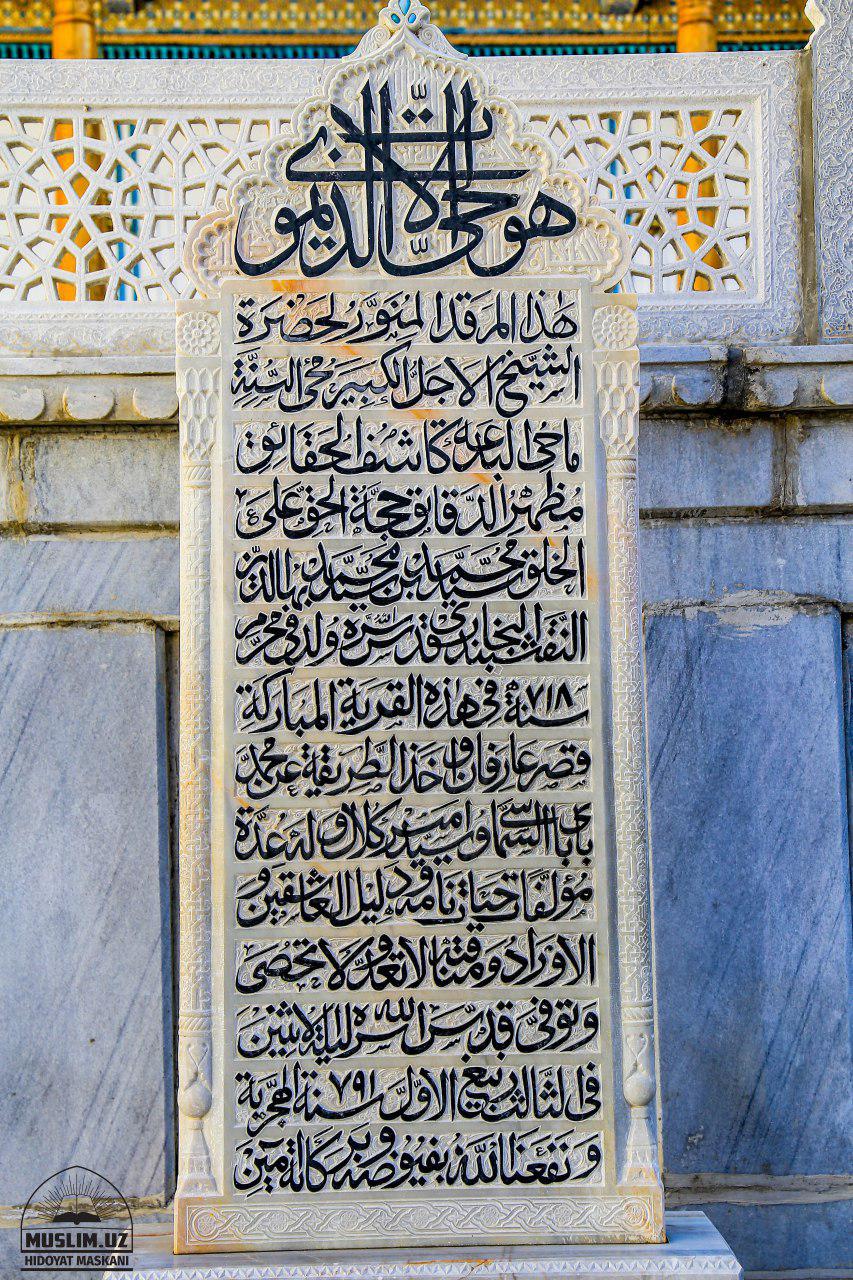 هو الحي الذي لا يموت
هذا المرقد المنوّر لحضرة
الشيخ الاجلّ الكبير محي السنّة
ماحي البدعة كاشف الحقائق
مظهر الدقايق حجة الحق على
الخلق سيد محمد بن سيد محمد بهاالدين
النقشبندي البخاري قدّس سرّه ولد في محرم
سنة ٧١٨ في هذه القرية المباركة
قصر عارفان واخذ الطريقة عن محمد
باباى السماسي وسيد امير كلال وله عدّة
مؤلفات حيات نامه ودليل العاشقين و
الاوراد ومناقبه لا تعد ولا تحصى
وتوفّى قدّس الله سره ليلة الاثنين
في الثالث ربيع الاول سنة ٧٩١ الهجرية
ونفعنا الله بفيوضه وبركاته آمين
MUSLIM.UZ
HIDOYAT MASKANI